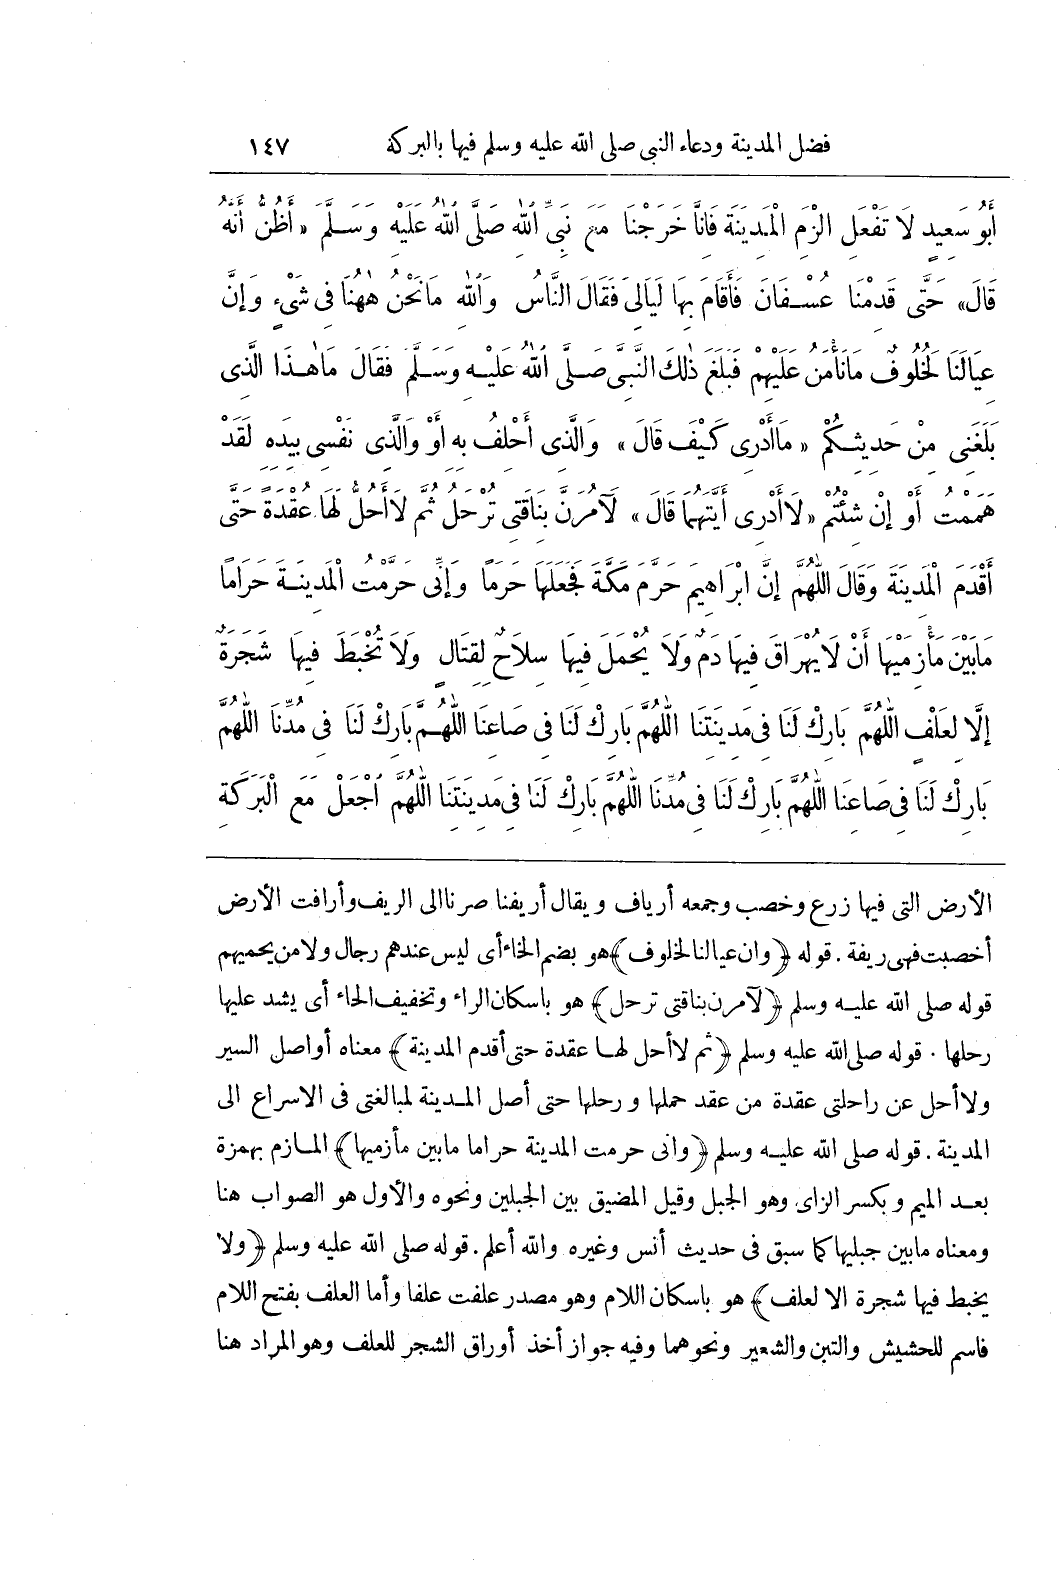 فضل المدينة ودعاء النبى صلى الله عليه وسلم فيها بالبركة ١٤٧
أَبُو سَعِيدٍ لَا تَفْعَلِ الْزَمِ الْمَدِينَةَ فَإِنَّا خَرَجْنَا مَعَ نَبِيِّ اللهِ صَلَّى اللهُ عَلَيْهِ وَسَلَّمَ «أَظُنُّ أَنَّهُ
قَالَ» حَتَّى قَدِمْنَا عُسْفَانَ فَأَقَامَ بِهَا لَيَالِىَ فَقَالَ النَّاسُ وَاللهِ مَا نَحْنُ هٰهُنَا فِى شَىْءٍ وَإِنَّ
عِيَالَنَا لَخُلُوفٌ مَا نَأْمَنُ عَلَيْهِمْ فَبَلَغَ ذٰلِكَ النَّبِىَّ صَلَّى اللهُ عَلَيْهِ وَسَلَّمَ فَقَالَ مَا هٰذَا الَّذِى
بَلَغَنِى مِنْ حَدِيثِكُمْ «مَا أَدْرِى كَيْفَ قَالَ» وَالَّذِى أَحْلِفُ بِهِ أَوْ وَالَّذِى نَفْسِى بِيَدِهِ لَقَدْ
هَمَمْتُ أَوْ إِنْ شِئْتُمْ «لَا أَدْرِى أَيَّتَهُمَا قَالَ» لَآمُرَنَّ بِنَاقَتِى تُرْحَلُ ثُمَّ لَا أَحُلُّ لَهَا عُقْدَةً حَتَّى
أَقْدَمَ الْمَدِينَةَ وَقَالَ اللّٰهُمَّ إِنَّ ابْرَاهِيمَ حَرَّمَ مَكَّةَ فَجَعَلَهَا حَرَمًا وَإِنِّى حَرَّمْتُ الْمَدِينَةَ حَرَامًا
مَا بَيْنَ مَأْزِمَيْهَا أَنْ لَا يُهْرَاقَ فِيهَا دَمٌ وَلَا يُحْمَلَ فِيهَا سِلَاحٌ لِقِتَالٍ وَلَا تُخْبَطَ فِيهَا شَجَرَةٌ
إِلَّا لِعَلْفٍ اللّٰهُمَّ بَارِكْ لَنَا فِى مَدِينَتِنَا اللّٰهُمَّ بَارِكْ لَنَا فِى صَاعِنَا اللّٰهُمَّ بَارِكْ لَنَا فِى مُدِّنَا اللّٰهُمَّ
بَارِكْ لَنَا فِى صَاعِنَا اللّٰهُمَّ بَارِكْ لَنَا فِى مُدِّنَا اللّٰهُمَّ بَارِكْ لَنَا فِى مَدِينَتِنَا اللّٰهُمَّ اجْعَلْ مَعَ الْبَرَكَةِ
الأرض التى فيها زرع وخصب وجمعه أرياف ويقال أريفنا صرنا الى الريف وأرافت الأرض
أخصبت فهى ريفة . قوله ﴿وان عيالنا لخلوف﴾ هو بضم الخاء أى ليس عندهم رجال ولا من يحميهم
قوله صلى الله عليه وسلم ﴿لآمرن بناقتى ترحل﴾ هو باسكان الراء وتخفيف الحاء أى يشد عليها
رحلها . قوله صلى الله عليه وسلم ﴿ثم لا أحل لها عقدة حتى أقدم المدينة﴾ معناه أواصل السير
ولا أحل عن راحلتى عقدة من عقد حملها ورحلها حتى أصل المدينة لمبالغتى فى الاسراع الى
المدينة . قوله صلى الله عليه وسلم ﴿وانى حرمت المدينة حراما مابين مأزميها﴾ المازم بهمزة
بعد الميم وبكسر الزاى وهو الجبل وقيل المضيق بين الجبلين ونحوه والأول هو الصواب هنا
ومعناه مابين جبليها كما سبق فى حديث أنس وغيره والله أعلم . قوله صلى الله عليه وسلم ﴿ولا
يخبط فيها شجرة الا لعلف﴾ هو باسكان اللام وهو مصدر علفت علفا وأما العلف بفتح اللام
فاسم للحشيش والتبن والشعير ونحوهما وفيه جواز أخذ أوراق الشجر للعلف وهو المراد هنا